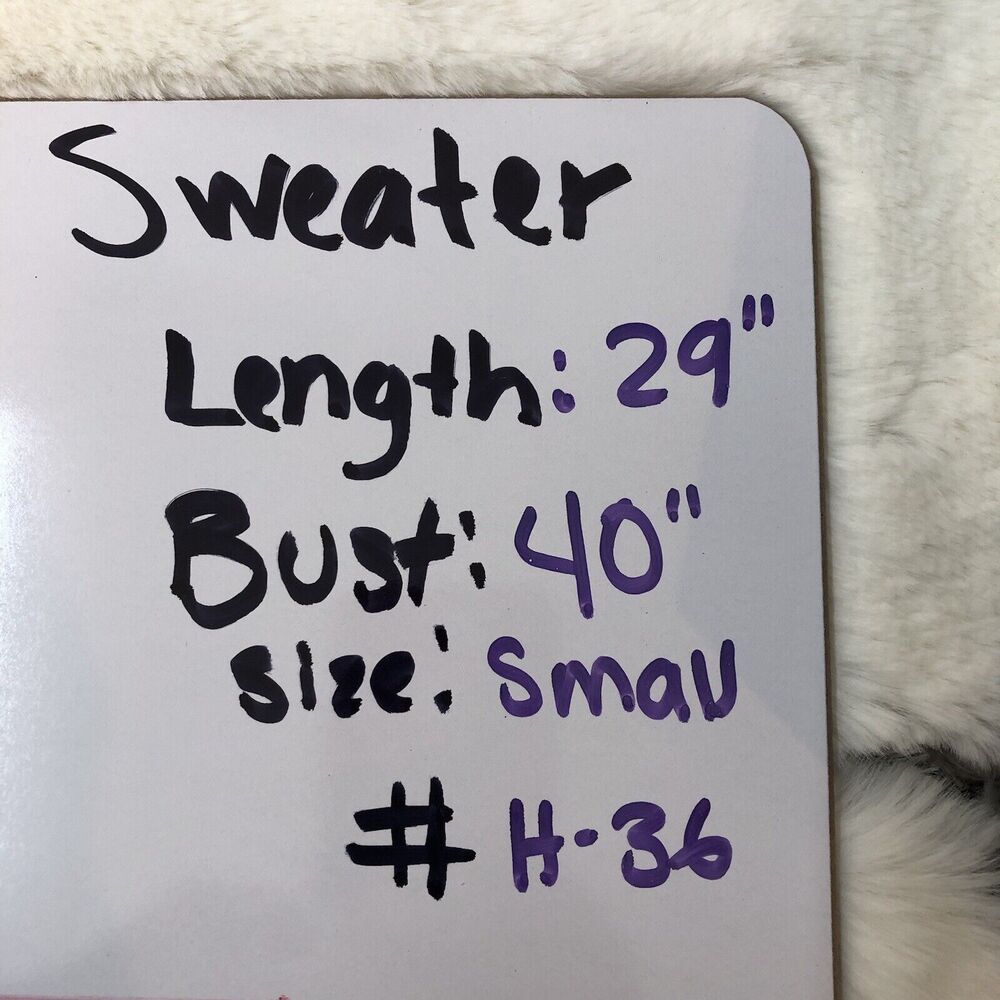 Sweater
Length: 29"
Bust: 40"
Size: Small
# H-36